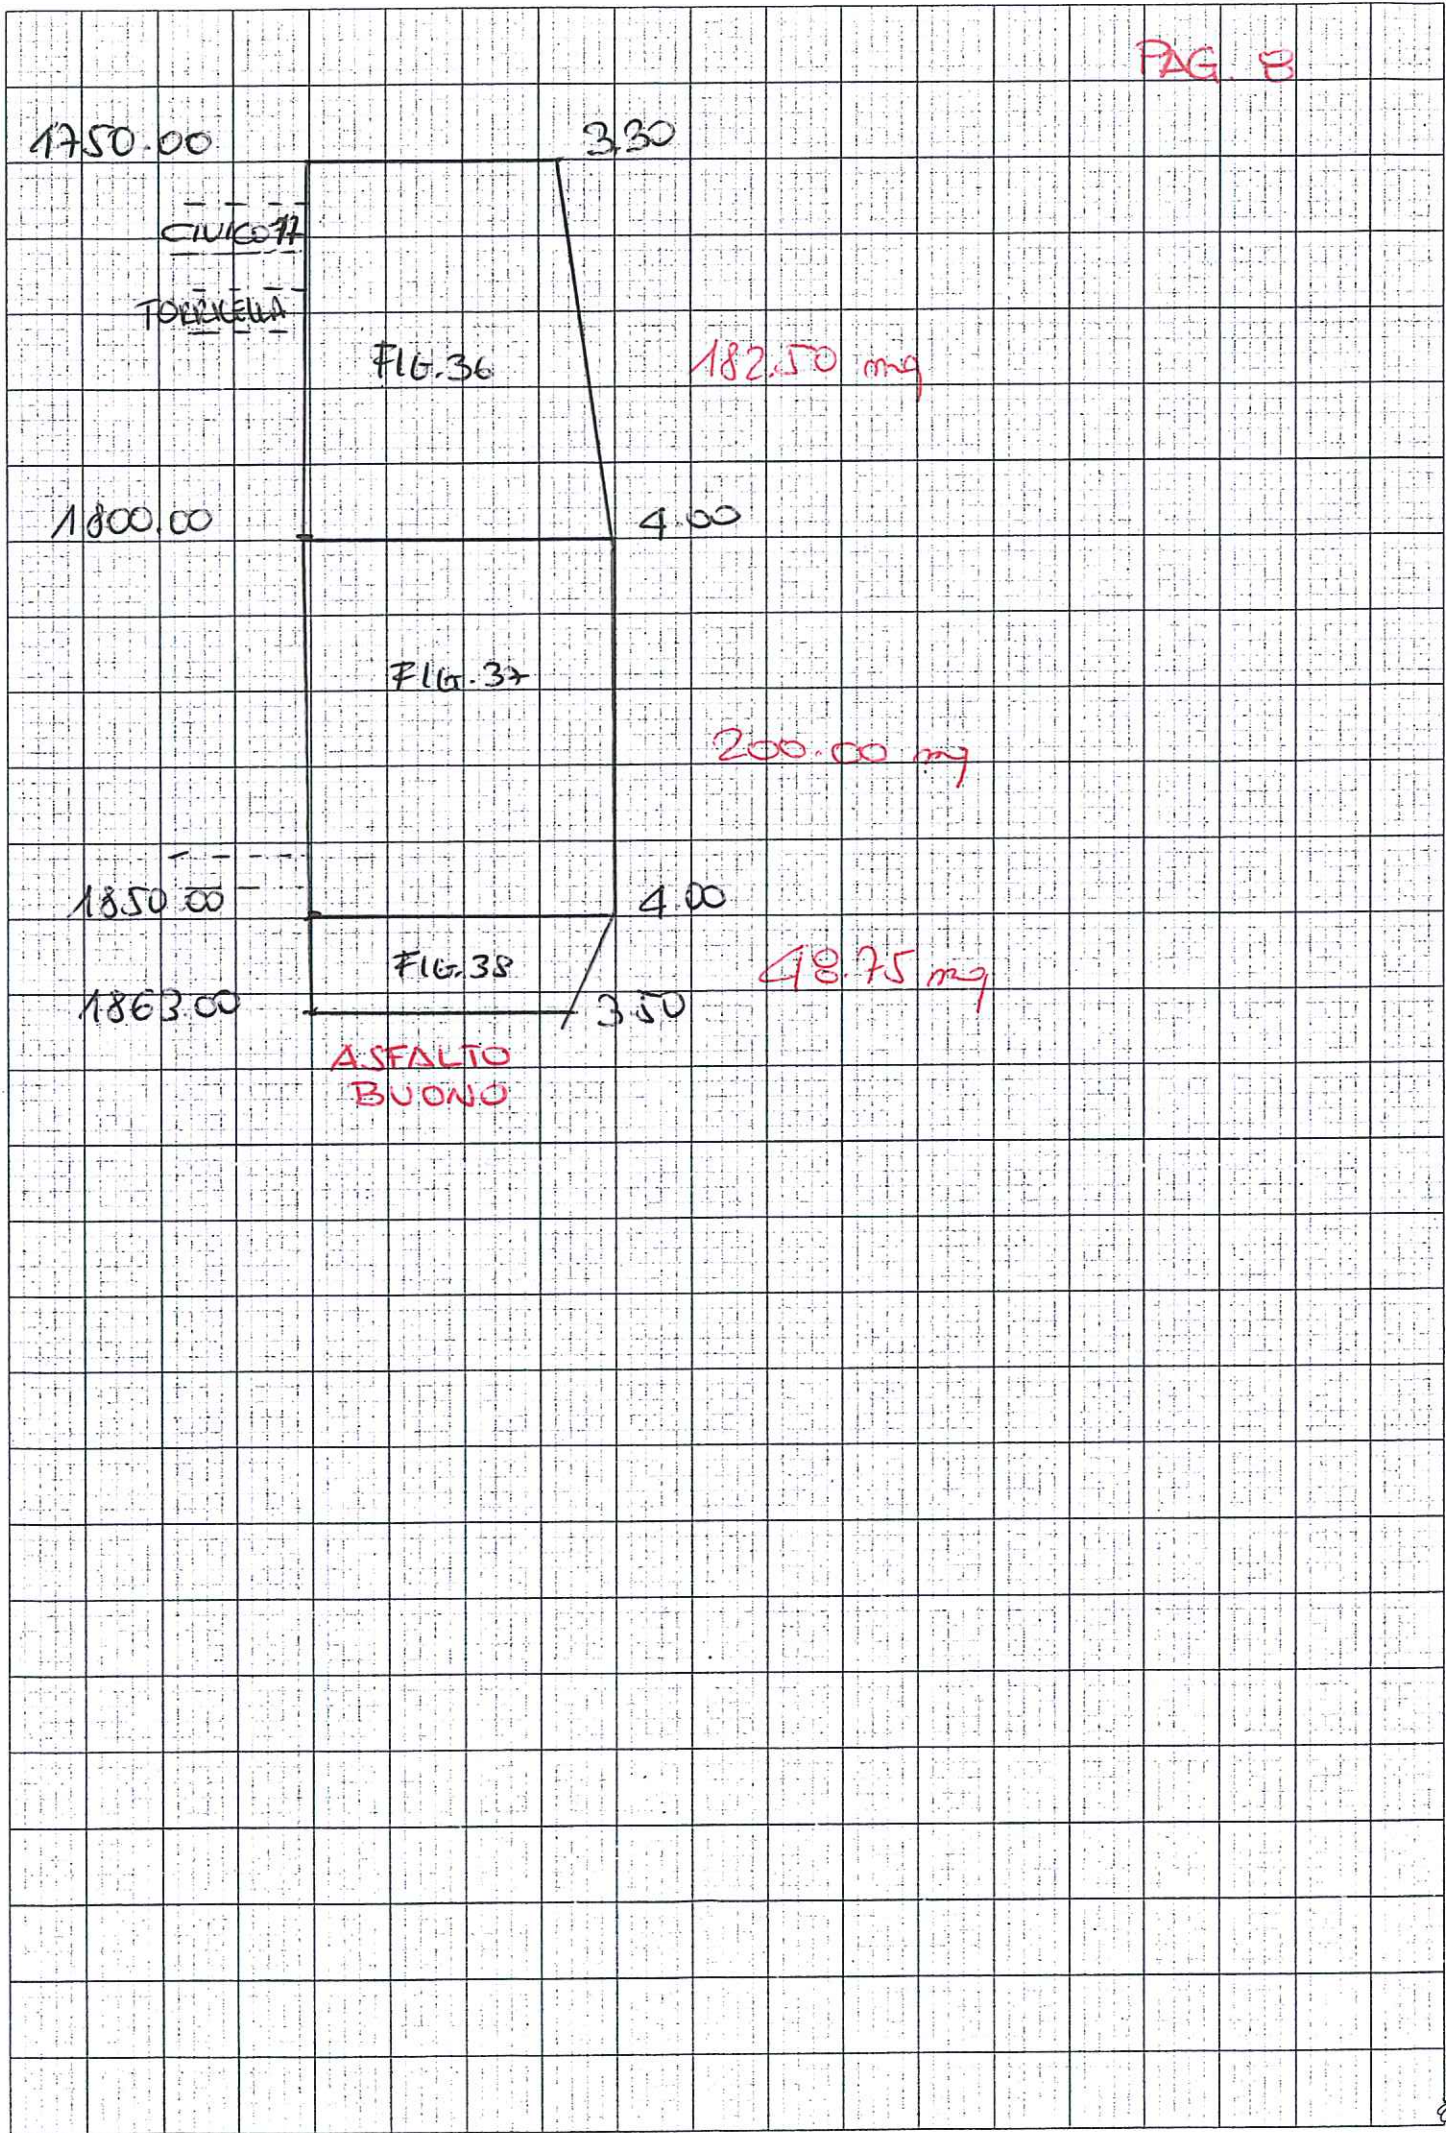 PAG. 8
1750.00 3.30
CIVICO 77
TORRICELLA
FIG. 36 182.50 mq
1800.00 4.00
FIG. 37
200.00 mq
1850.00 4.00
FIG. 38 48.75 mq
1863.00 3.50
ASFALTO
BUONO